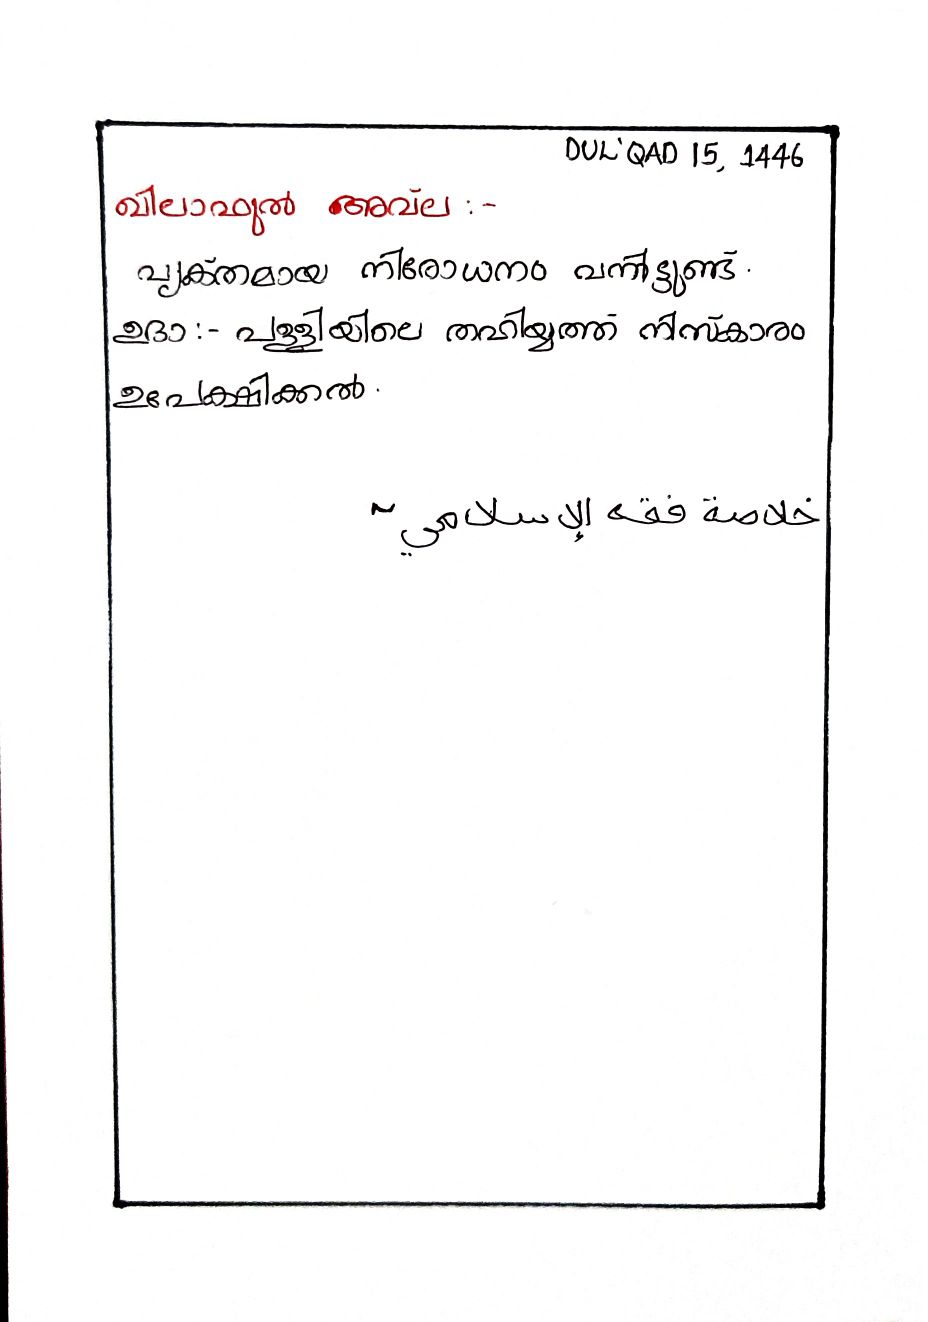 DUL'QAD 15, 1446
ഖിലാഫുൽ അവ്ല :-
വ്യക്തമായ നിരോധനം വന്നിട്ടുണ്ട്.
ഉദാ:- പള്ളിയിലെ തഹിയ്യത്ത് നിസ്കാരം
ഉപേക്ഷിക്കൽ.
خلاصة فقه الإسلامي ~